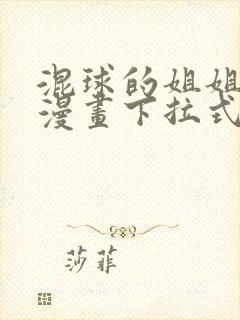 混球的姐姐
漫畫下拉式
莎菲